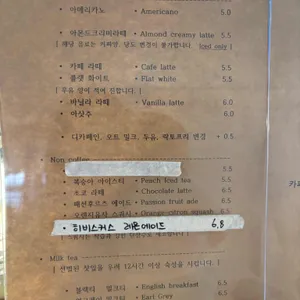 • 아메리카노 • Americano 5.0
• 아몬드크리미라떼 • Almond creamy latte 5.5
[ 해당 음료는 커피양, 당도 변경이 불가합니다. iced only ]
• 카페 라떼 • Cafe latte 5.5
• 플랫 화이트 • Flat white 5.5
[ 우유 양이 적어 진합니다. ]
• 바닐라 라떼 • Vanilla latte 6.0
• 아샷추 6.0
• 디카페인, 오트 밀크, 두유, 락토프리 변경 • 0.5
Non coffee
5.5
• 복숭아 아이스티 • Peach iced tea 5.5
• 초코 라떼 • Chocolate latte 6.5
• 패션후르츠 에이드 • Passion fruit ade 6.5
• Orange citrus squash 6.5
• 히비스커스 레몬에이드 6.8
Milk tea
[ 선별된 찻잎을 우려 12시간 이상 숙성을 시킵니다. ]
• 블랙티 밀크티 • English breakfast 6.5
밀크티 • Earl Grey